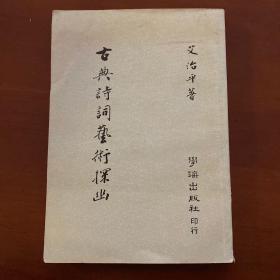 艾治平著
古典詩詞藝術探幽
學海出版社印行